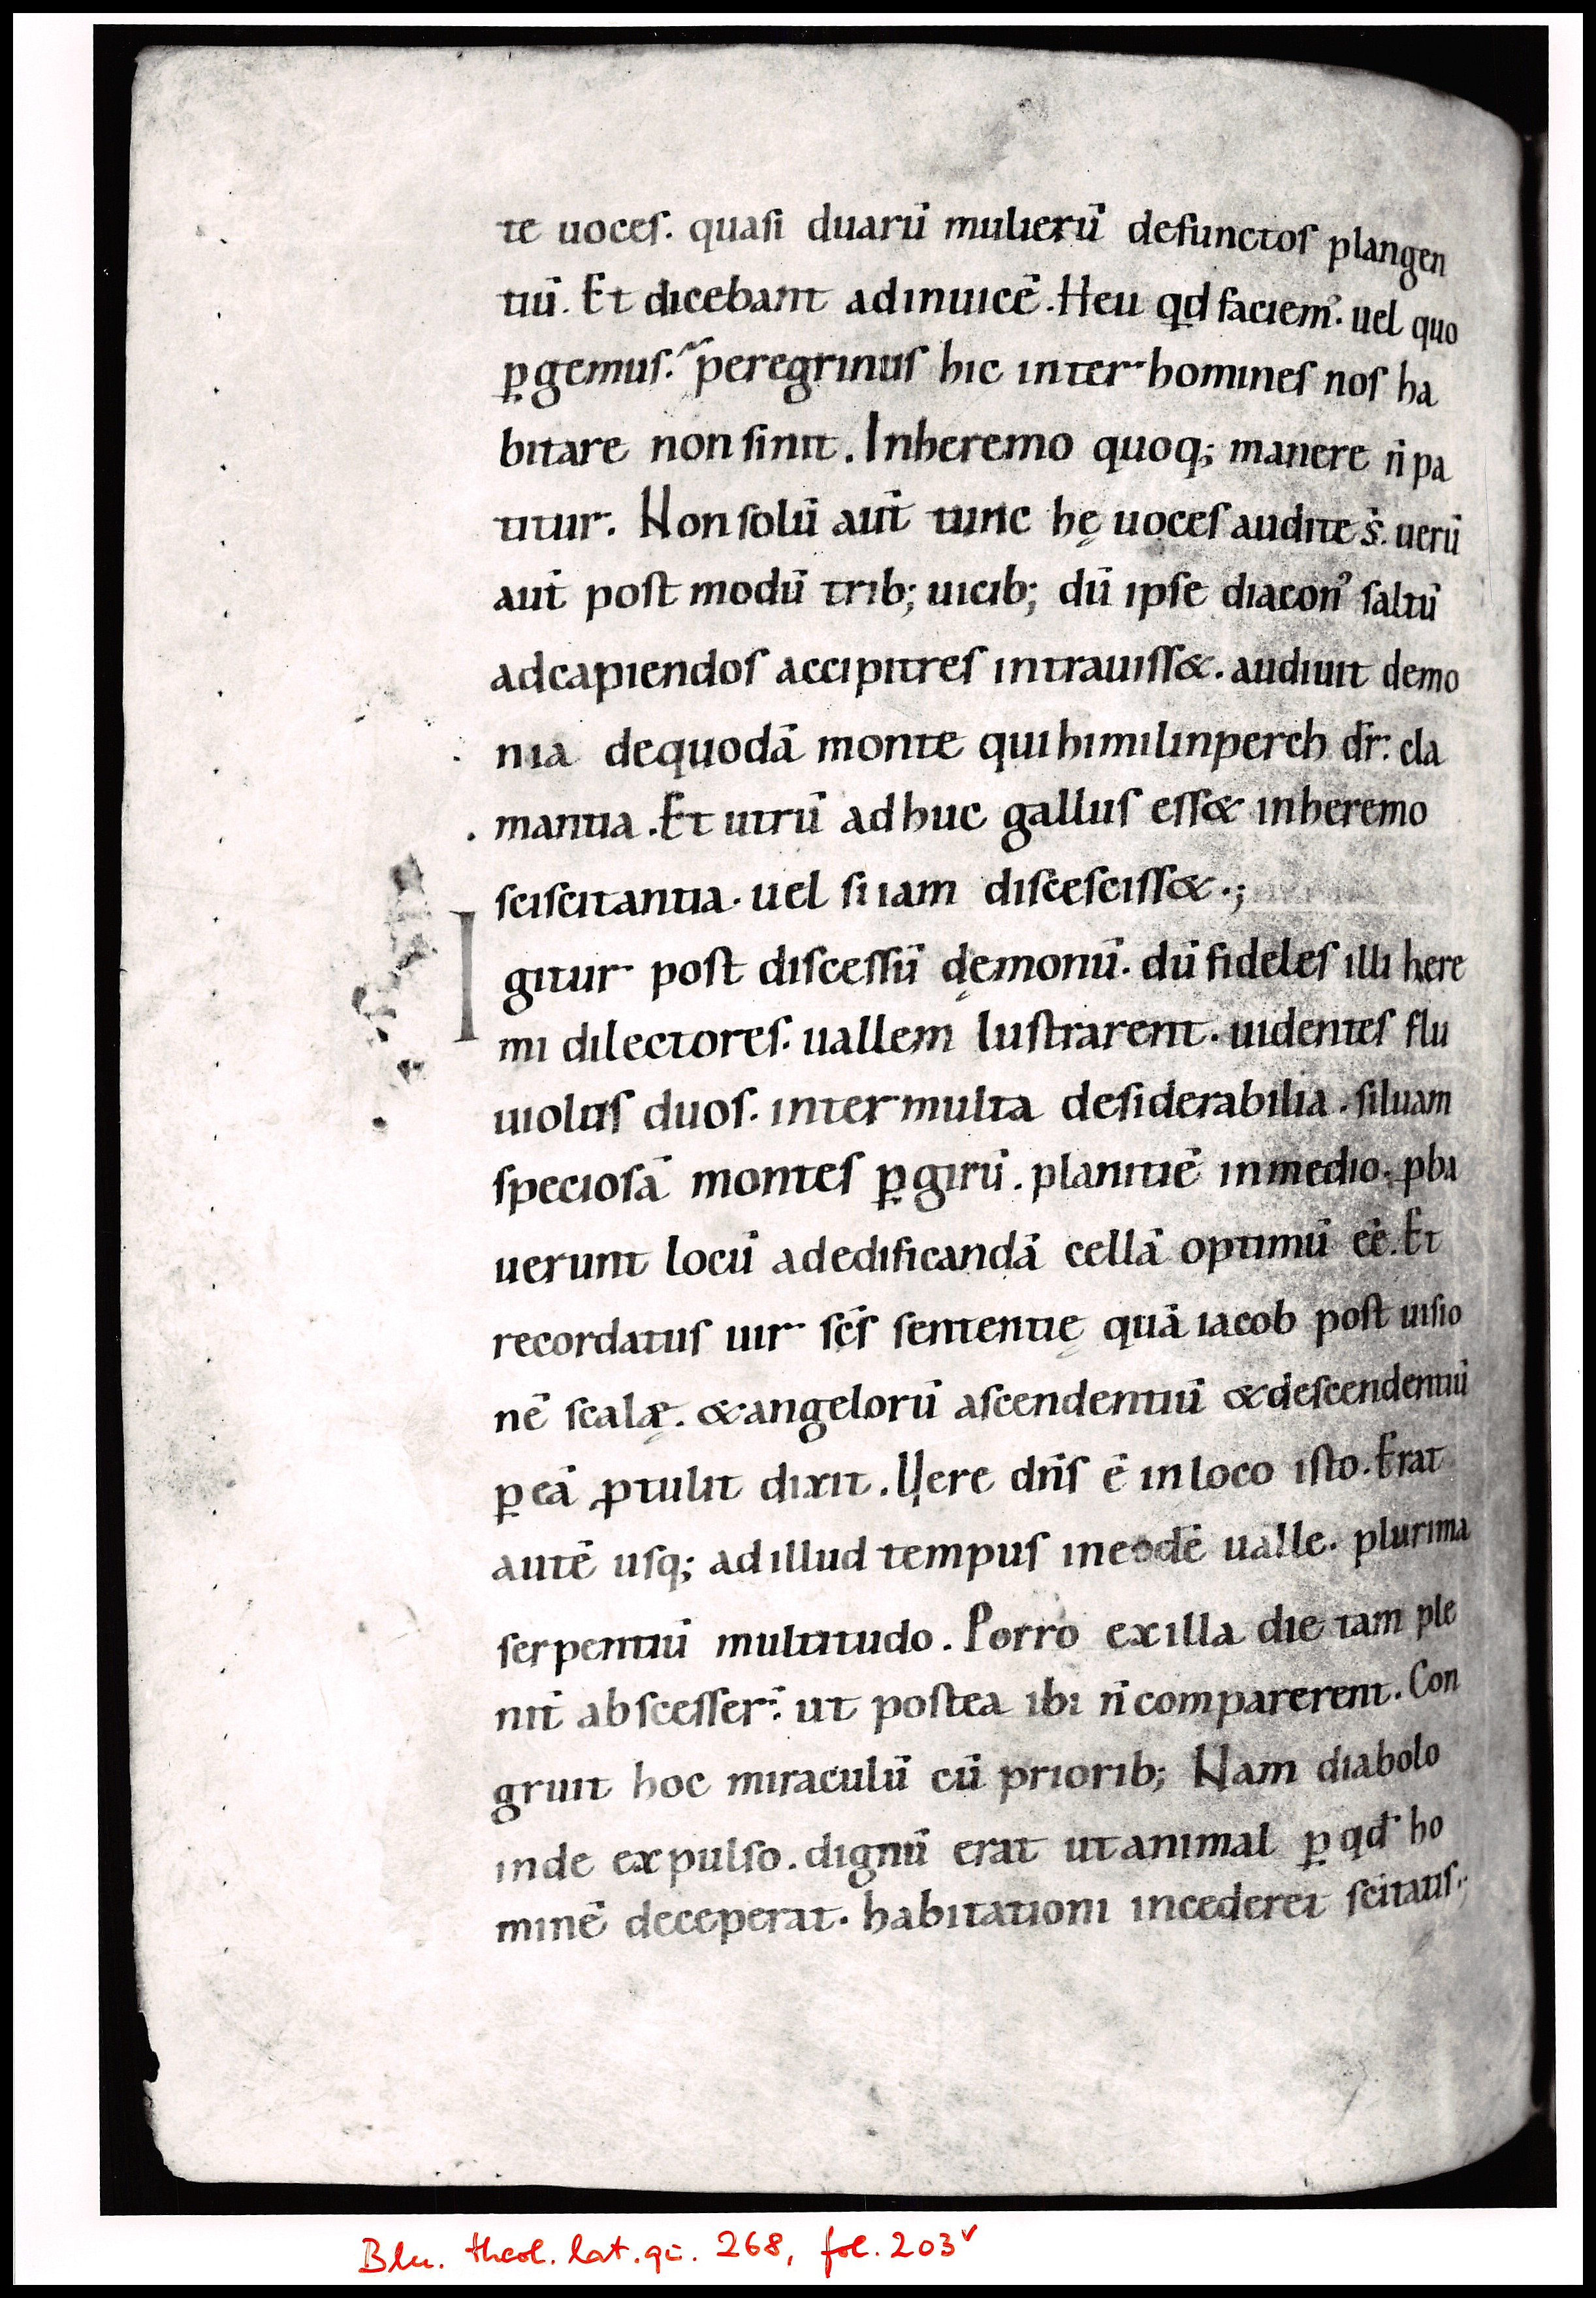 te uoceſ. quaſi duarū mulierū defunctoſ plangen
tiū. Et dicebant adinuicē. Heu qd faciem᾽. uel quo
ꝑgemuſ.᾽ peregrinuſ hic inter homineſ noſ ha
bitare non ſinit. Inheremo quoq; manere n̄ pa
titur. Non ſolū aut̄ tunc hę uoceſ audite s̄. uerū
aut̄ poſt modū trib; uicib; dū ipſe diacon᾽ ſaltū
adcapiendoſ accipitreſ intrauiſſ&. audiuit demo
nia dequodā monte qui himilinperch dr̄. cla
mantia. Et utrū adhuc galluſ eſſ& inheremo
ſciſcitantia. uel ſi iam diſceſciſſ&.;
Igitur poſt diſceſſū dęmonū. dū fideleſ illi here
mi dilectoreſ. uallem luſtrarent. uidenteſ flu
uioluſ duoſ. inter multa deſiderabilia. ſiluam
ſpecioſā monteſ ꝑ girū. planitiē inmedio. ꝓba
uerunt locū adedificandā cellā optimū eē. Et
recordatuſ uir ſc̄ſ ſententię quā iacob poſt uiſio
nē ſcalę. & angelorū aſcendentiū & deſcendentiū
ꝑ eā ꝓtulit dixit. Vere dn̄ſ ē in loco iſto. Erat
autē uſq; ad illud tempuſ ineodē ualle. plurima
ſerpentiū multitudo. Porro exilla die tam ple
nit̄ abſceſſer̄. ut poſtea ibi n̄ comparerent. Con
gruit hoc miraculū cū priorib; Nam diabolo
inde expulſo. dignū erat ut animal ꝑ qd̄ ho
minē deceperat. habitationi incederet ſcitatiſ.;
Bln. theol. lat. qu. 268, fol. 203v